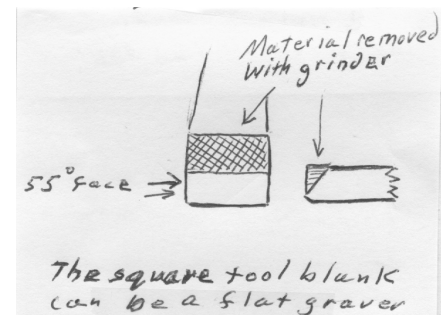 Material removed
with grinder
55° face
The square tool blank
can be a flat graver